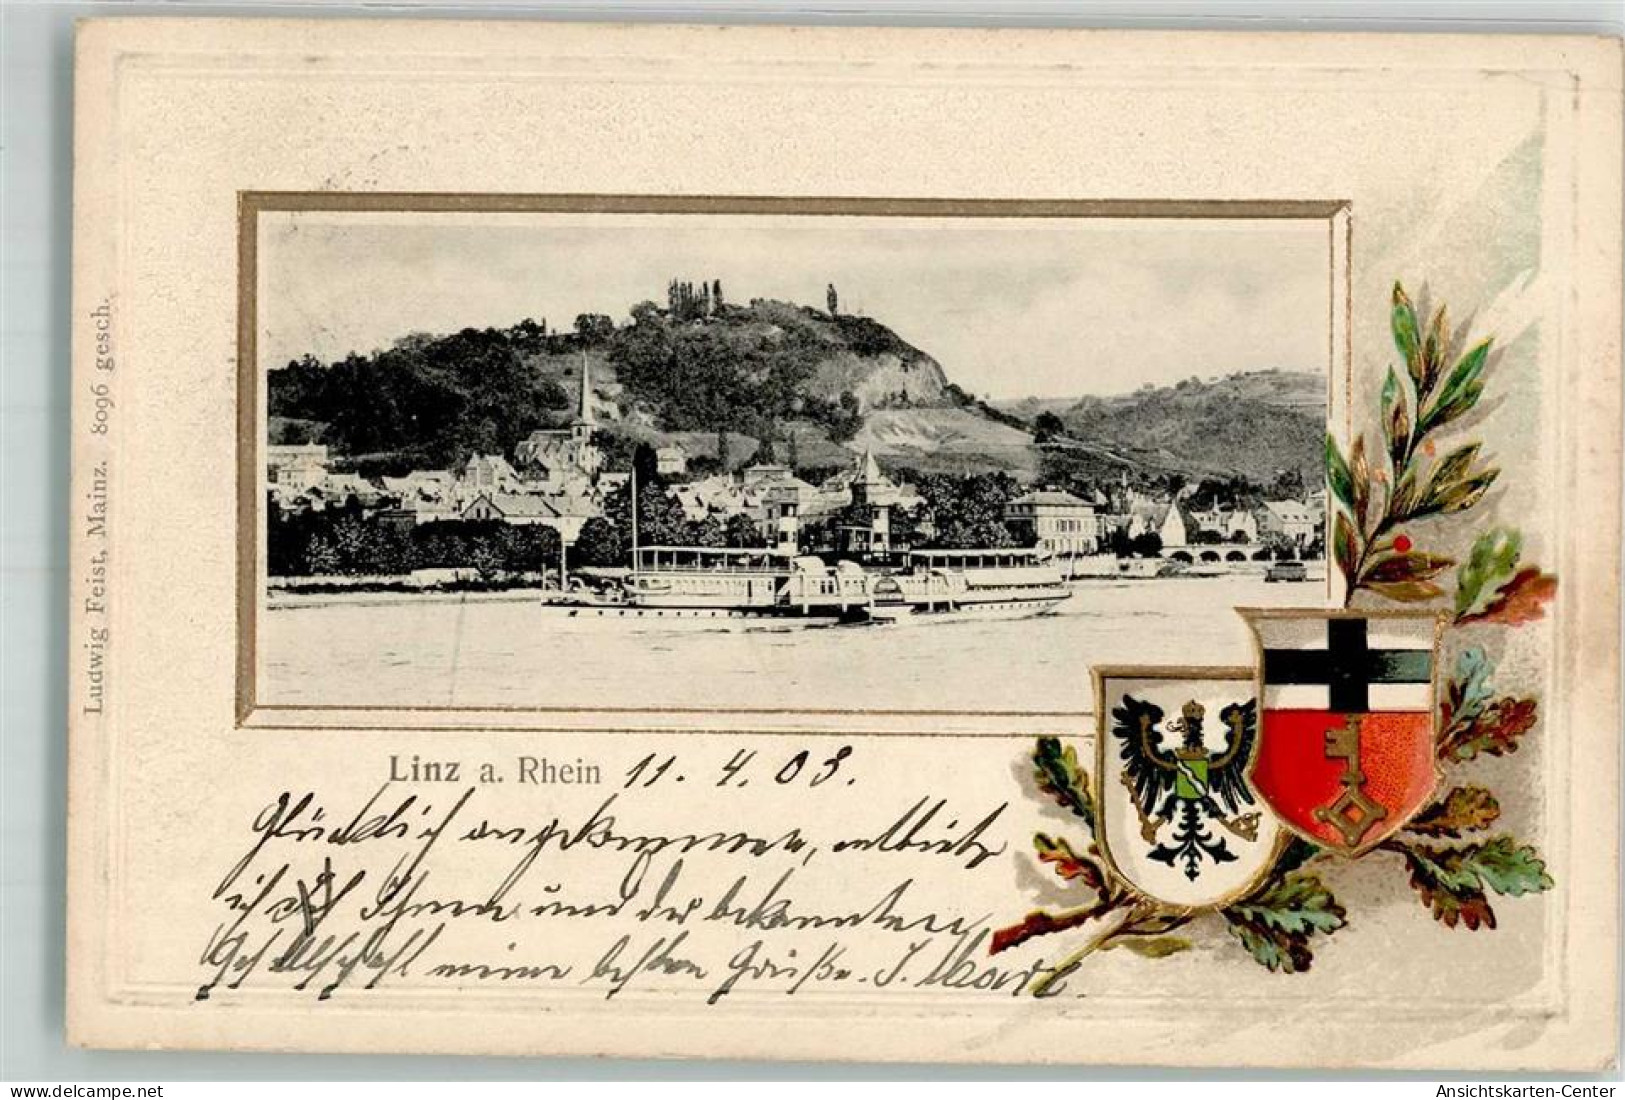 Ludwig Feist, Mainz. 8096 gesch.
Linz a. Rhein 11. 4. 03.
Glücklich angekommen, entbiete
ich Ihnen und der bekannten
Gesellschaft meine besten Grüße. J.
Ansichtskarten-Center